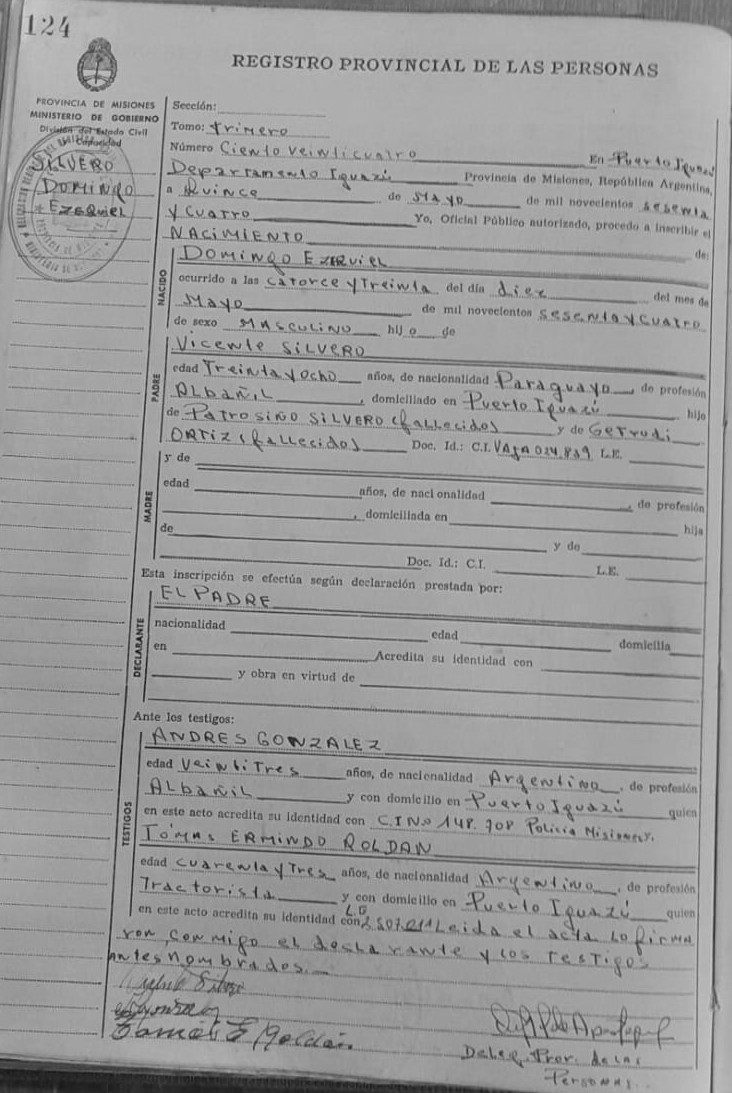 124
REGISTRO PROVINCIAL DE LAS PERSONAS
PROVINCIA DE MISIONES
MINISTERIO DE GOBIERNO
División del Estado Civil
y Capacidad
SILVERO
DOMINGO
EZEQUIEL
Sección:
Tomo: Primero
Número Ciento Veinticuatro En Puerto Iguazú
Departamento Iguazú Provincia de Misiones, República Argentina,
a Quince de Mayo de mil novecientos sesenta
y cuatro Yo, Oficial Público autorizado, procedo a inscribir el
NACIMIENTO de:
NACIDO
DOMINGO EZEQUIEL
ocurrido a las catorce y Treinta del día diez del mes de
Mayo de mil novecientos sesenta y cuatro
de sexo MASCULINO hijo de
PADRE
Vicente SILVERO
edad Treinta y ocho años, de nacionalidad Paraguayo, de profesión
Albañil, domiciliado en Puerto Iguazú hijo
de Patrosiño SILVERO (fallecidos) y de Getrudi
ORTIZ (fallecidos) Doc. Id.: C.I. L.E.
MADRE
y de
edad años, de nacionalidad , de profesión
, domiciliada en hija
de y de
Doc. Id.: C.I. L.E.
Esta inscripción se efectúa según declaración prestada por:
DECLARANTE
EL PADRE
nacionalidad edad domicilia
en Acredita su identidad con
y obra en virtud de
Ante los testigos:
TESTIGOS
ANDRES GONZALEZ
edad Veintitres años, de nacionalidad Argentino, de profesión
Albañil y con domicilio en Puerto Iguazú quien
en este acto acredita su identidad con C.I.Nº 148.708 Policía Misiones.
TOMAS ERMINDO ROLDAN
edad cuarenta y Tres años, de nacionalidad Argentino, de profesión
Tractorista y con domicilio en Puerto Iguazú quien
en este acto acredita su identidad con Leida el acta lo firma
ron, conmigo el declarante y los Testigos
antes nombrados.
Tomás E Roldán
Deleg. Prov. de las
Personas.